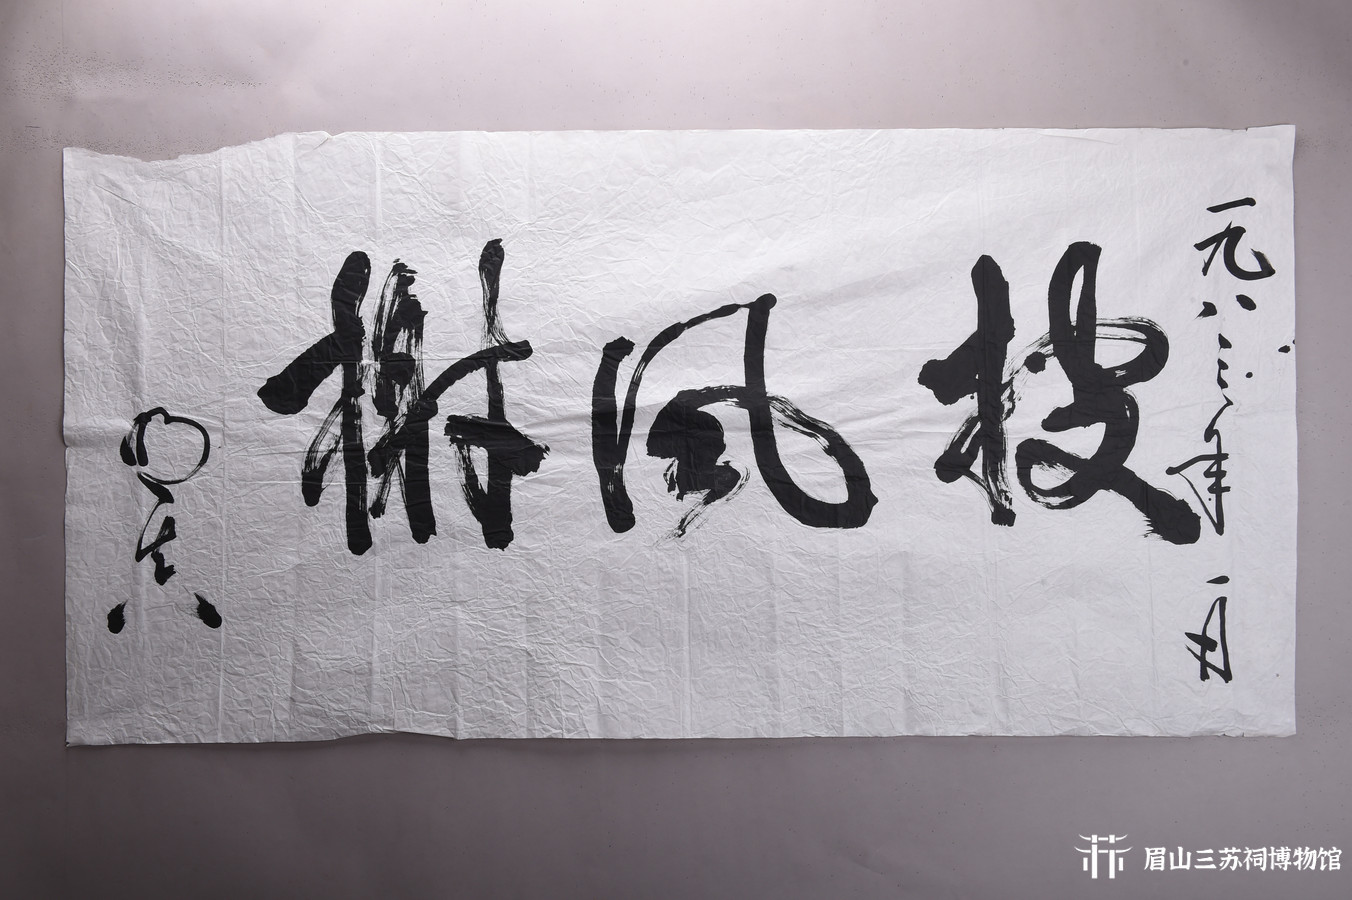 一九八三年一月
披風榭
眉山三苏祠博物馆